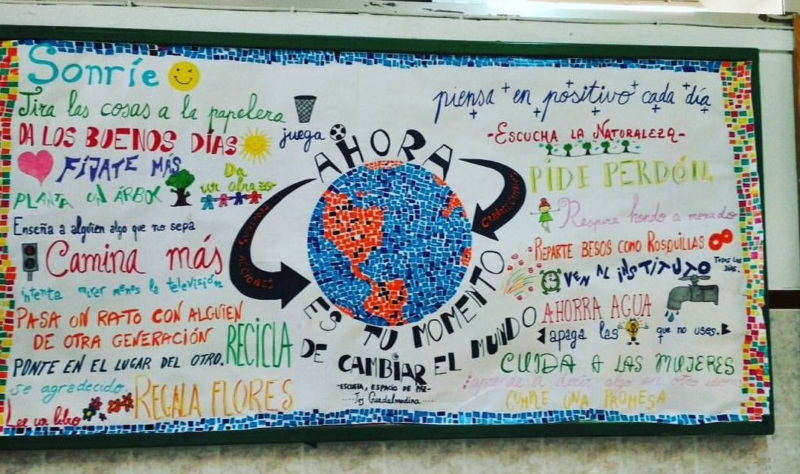 Sonríe
Tira las cosas a la papelera
DA LOS BUENOS DÍAS
juega
FÍJATE MÁS
Da
un abrazo
PLANTA UN ÁRBOL
Enseña a alguien algo que no sepa
Camina más
intenta mirar menos la televisión
PASA UN RATO CON ALGUIEN
DE OTRA GENERACIÓN
RECICLA
PONTE EN EL LUGAR DEL OTRO.
se agradecido.
REGALA FLORES
Lee un libro
AHORA
ES TU MOMENTO
DE CAMBIAR EL MUNDO
-ESCUELA, ESPACIO DE PAZ-
Guadalmedina
piensa en positivo cada día
-ESCUCHA LA NATURALEZA-
PIDE PERDÓN
Respira hondo a menudo
REPARTE BESOS COMO ROSQUILLAS
VEN AL INSTITUTO
TODOS LOS
DÍAS.
AHORRA AGUA
apaga las que no usas.
CUIDA A LAS MUJERES
aprende a decir algo en otro idioma
CUMPLE UNA PROMESA